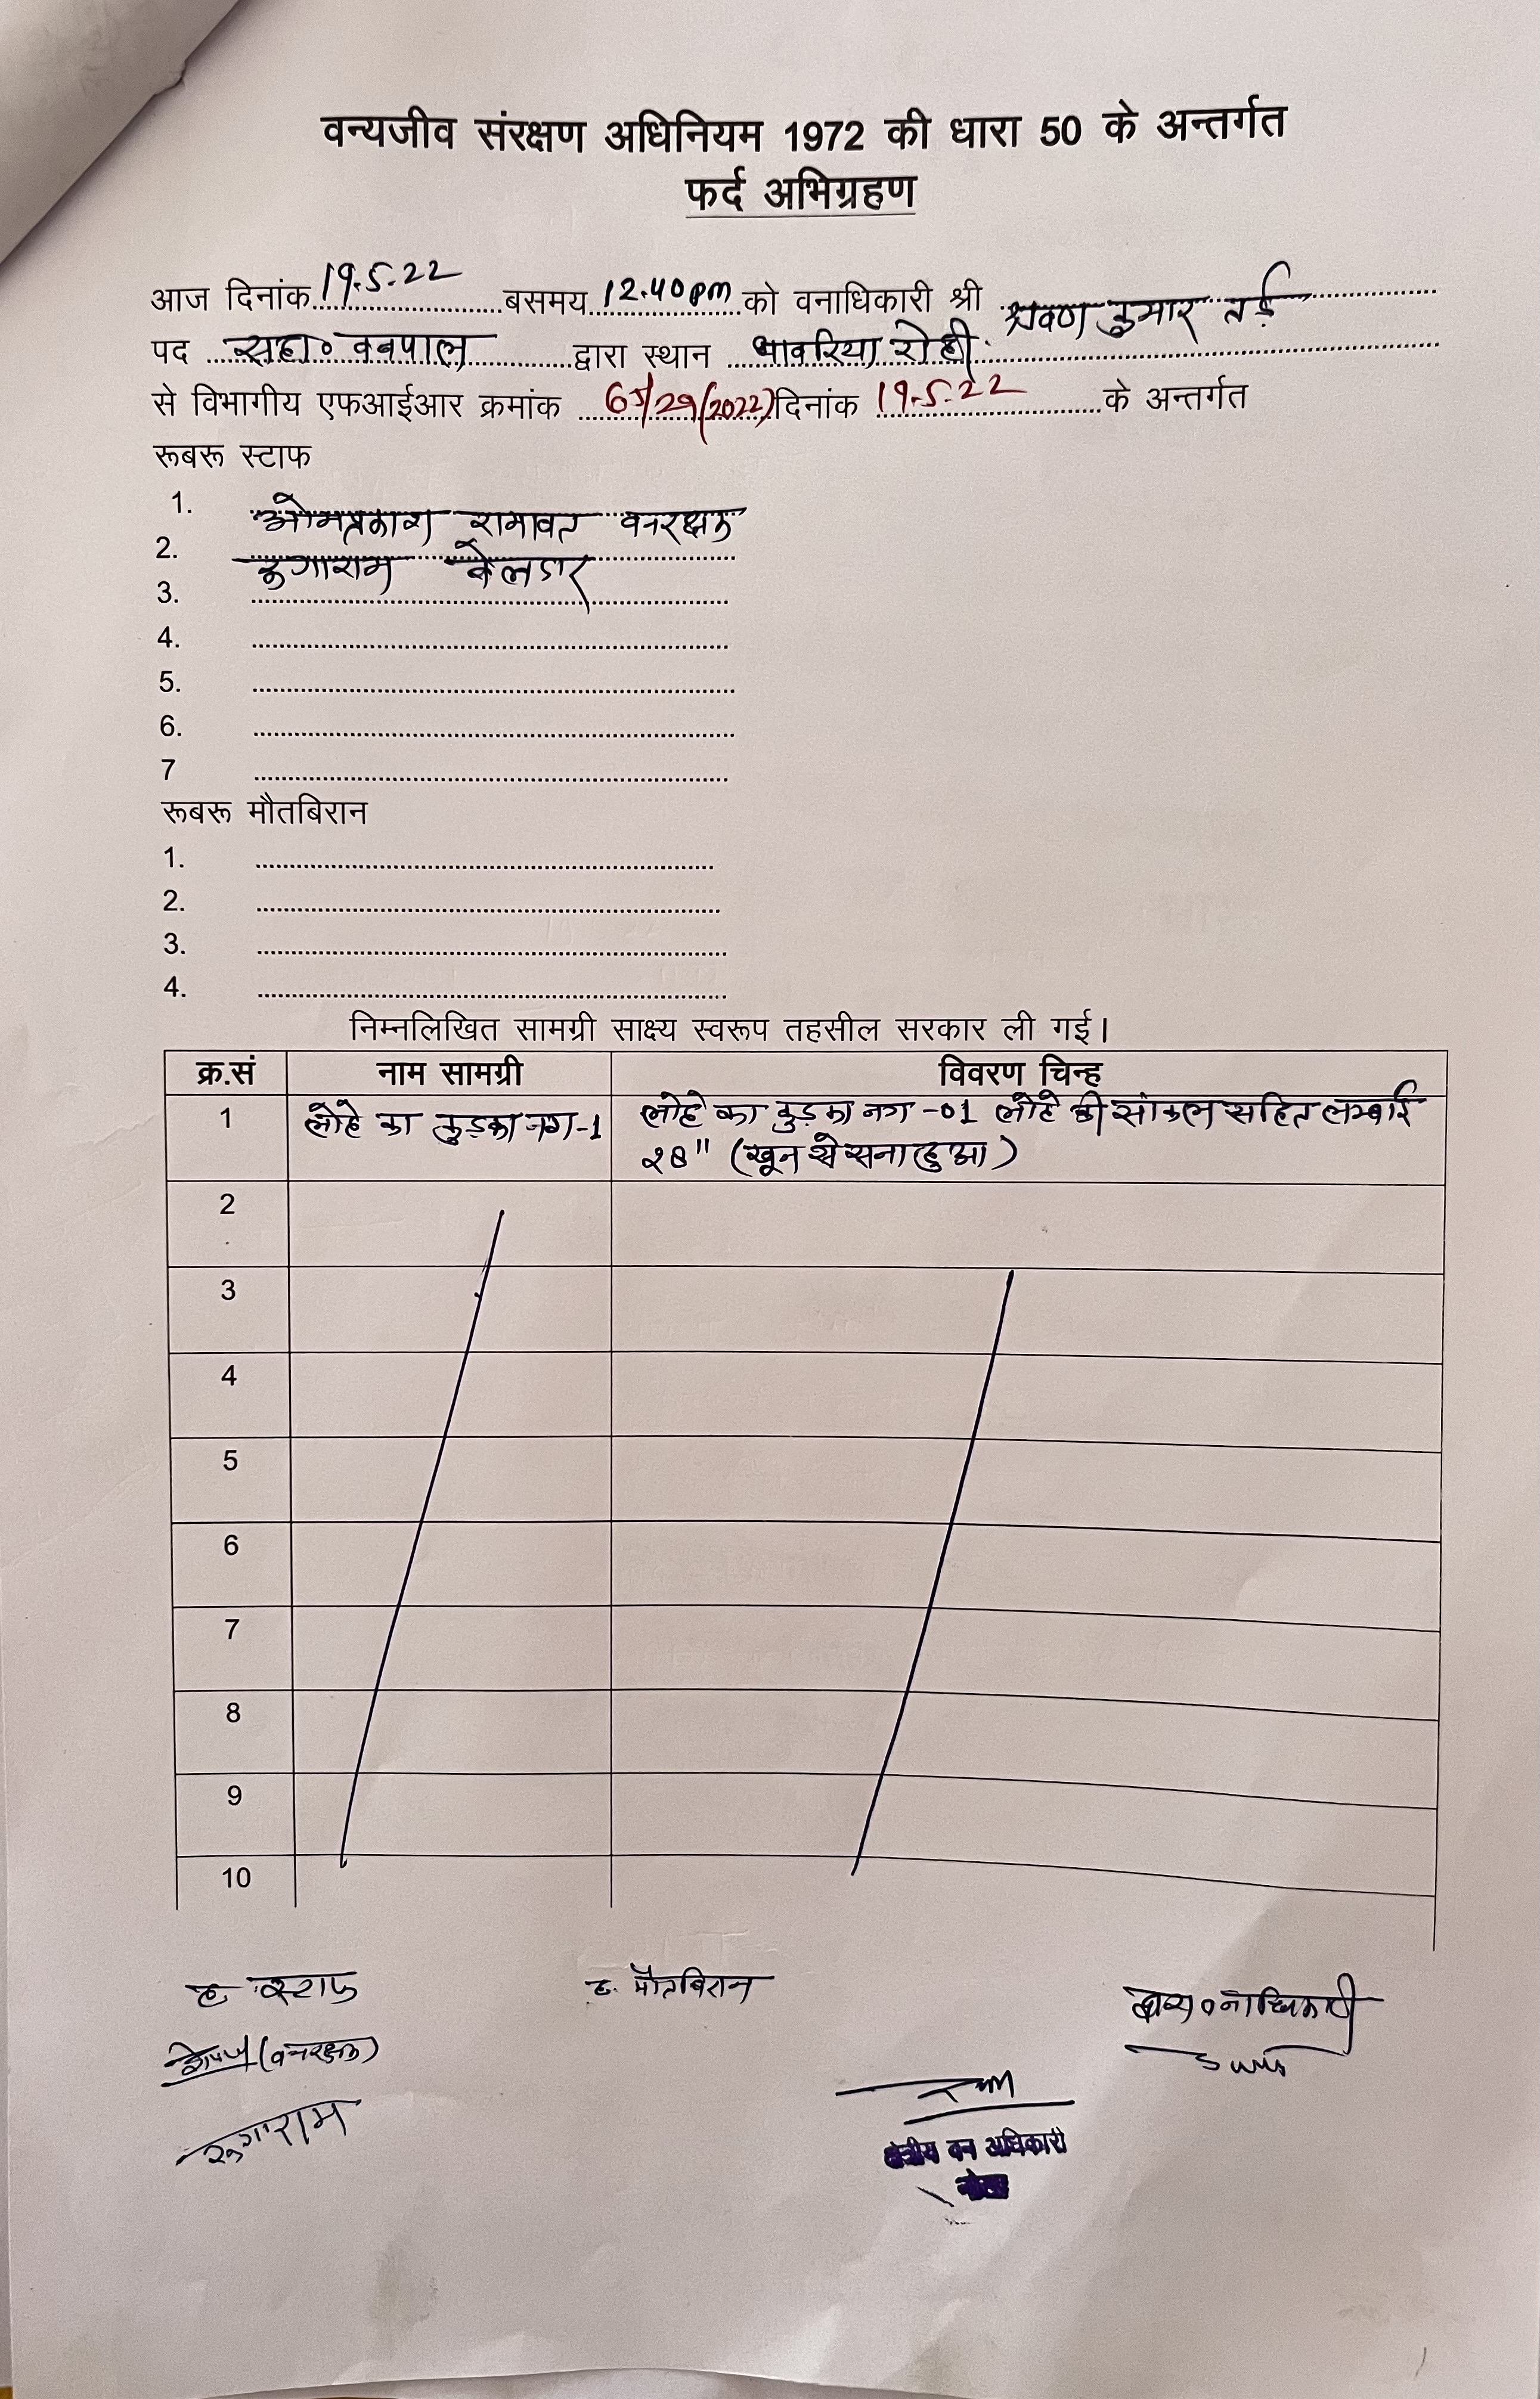 वन्यजीव संरक्षण अधिनियम 1972 की धारा 50 के अन्तर्गत
फर्द अभिग्रहण
आज दिनांक 19.5.22 बसमय 12.40pm को वनाधिकारी श्री श्रवण कुमार
पद सहा० वनपाल द्वारा स्थान रोही
से विभागीय एफआईआर क्रमांक /29(2022) दिनांक 19.5.22 के अन्तर्गत
रूबरू स्टाफ
1. ओमप्रकाश रामावत वनरक्षक
2. रूगाराम बेलदार
3.
4.
5.
6.
7
रूबरू मौतबिरान
1.
2.
3.
4.
निम्नलिखित सामग्री साक्ष्य स्वरूप तहसील सरकार ली गई।
क्र.सं नाम सामग्री विवरण चिन्ह
1 लोहे का कुड़का नग-1 लोहे का कुड़का नग -01 लोहे की सांकल सहित लम्बाई
28" (खून से सना हुआ)
2
3
4
5
6
7
8
9
10
ह स्टाफ ह. मौतबिरान
(वनरक्षक)
रूगाराम
क्षेत्रीय वन अधिकारी